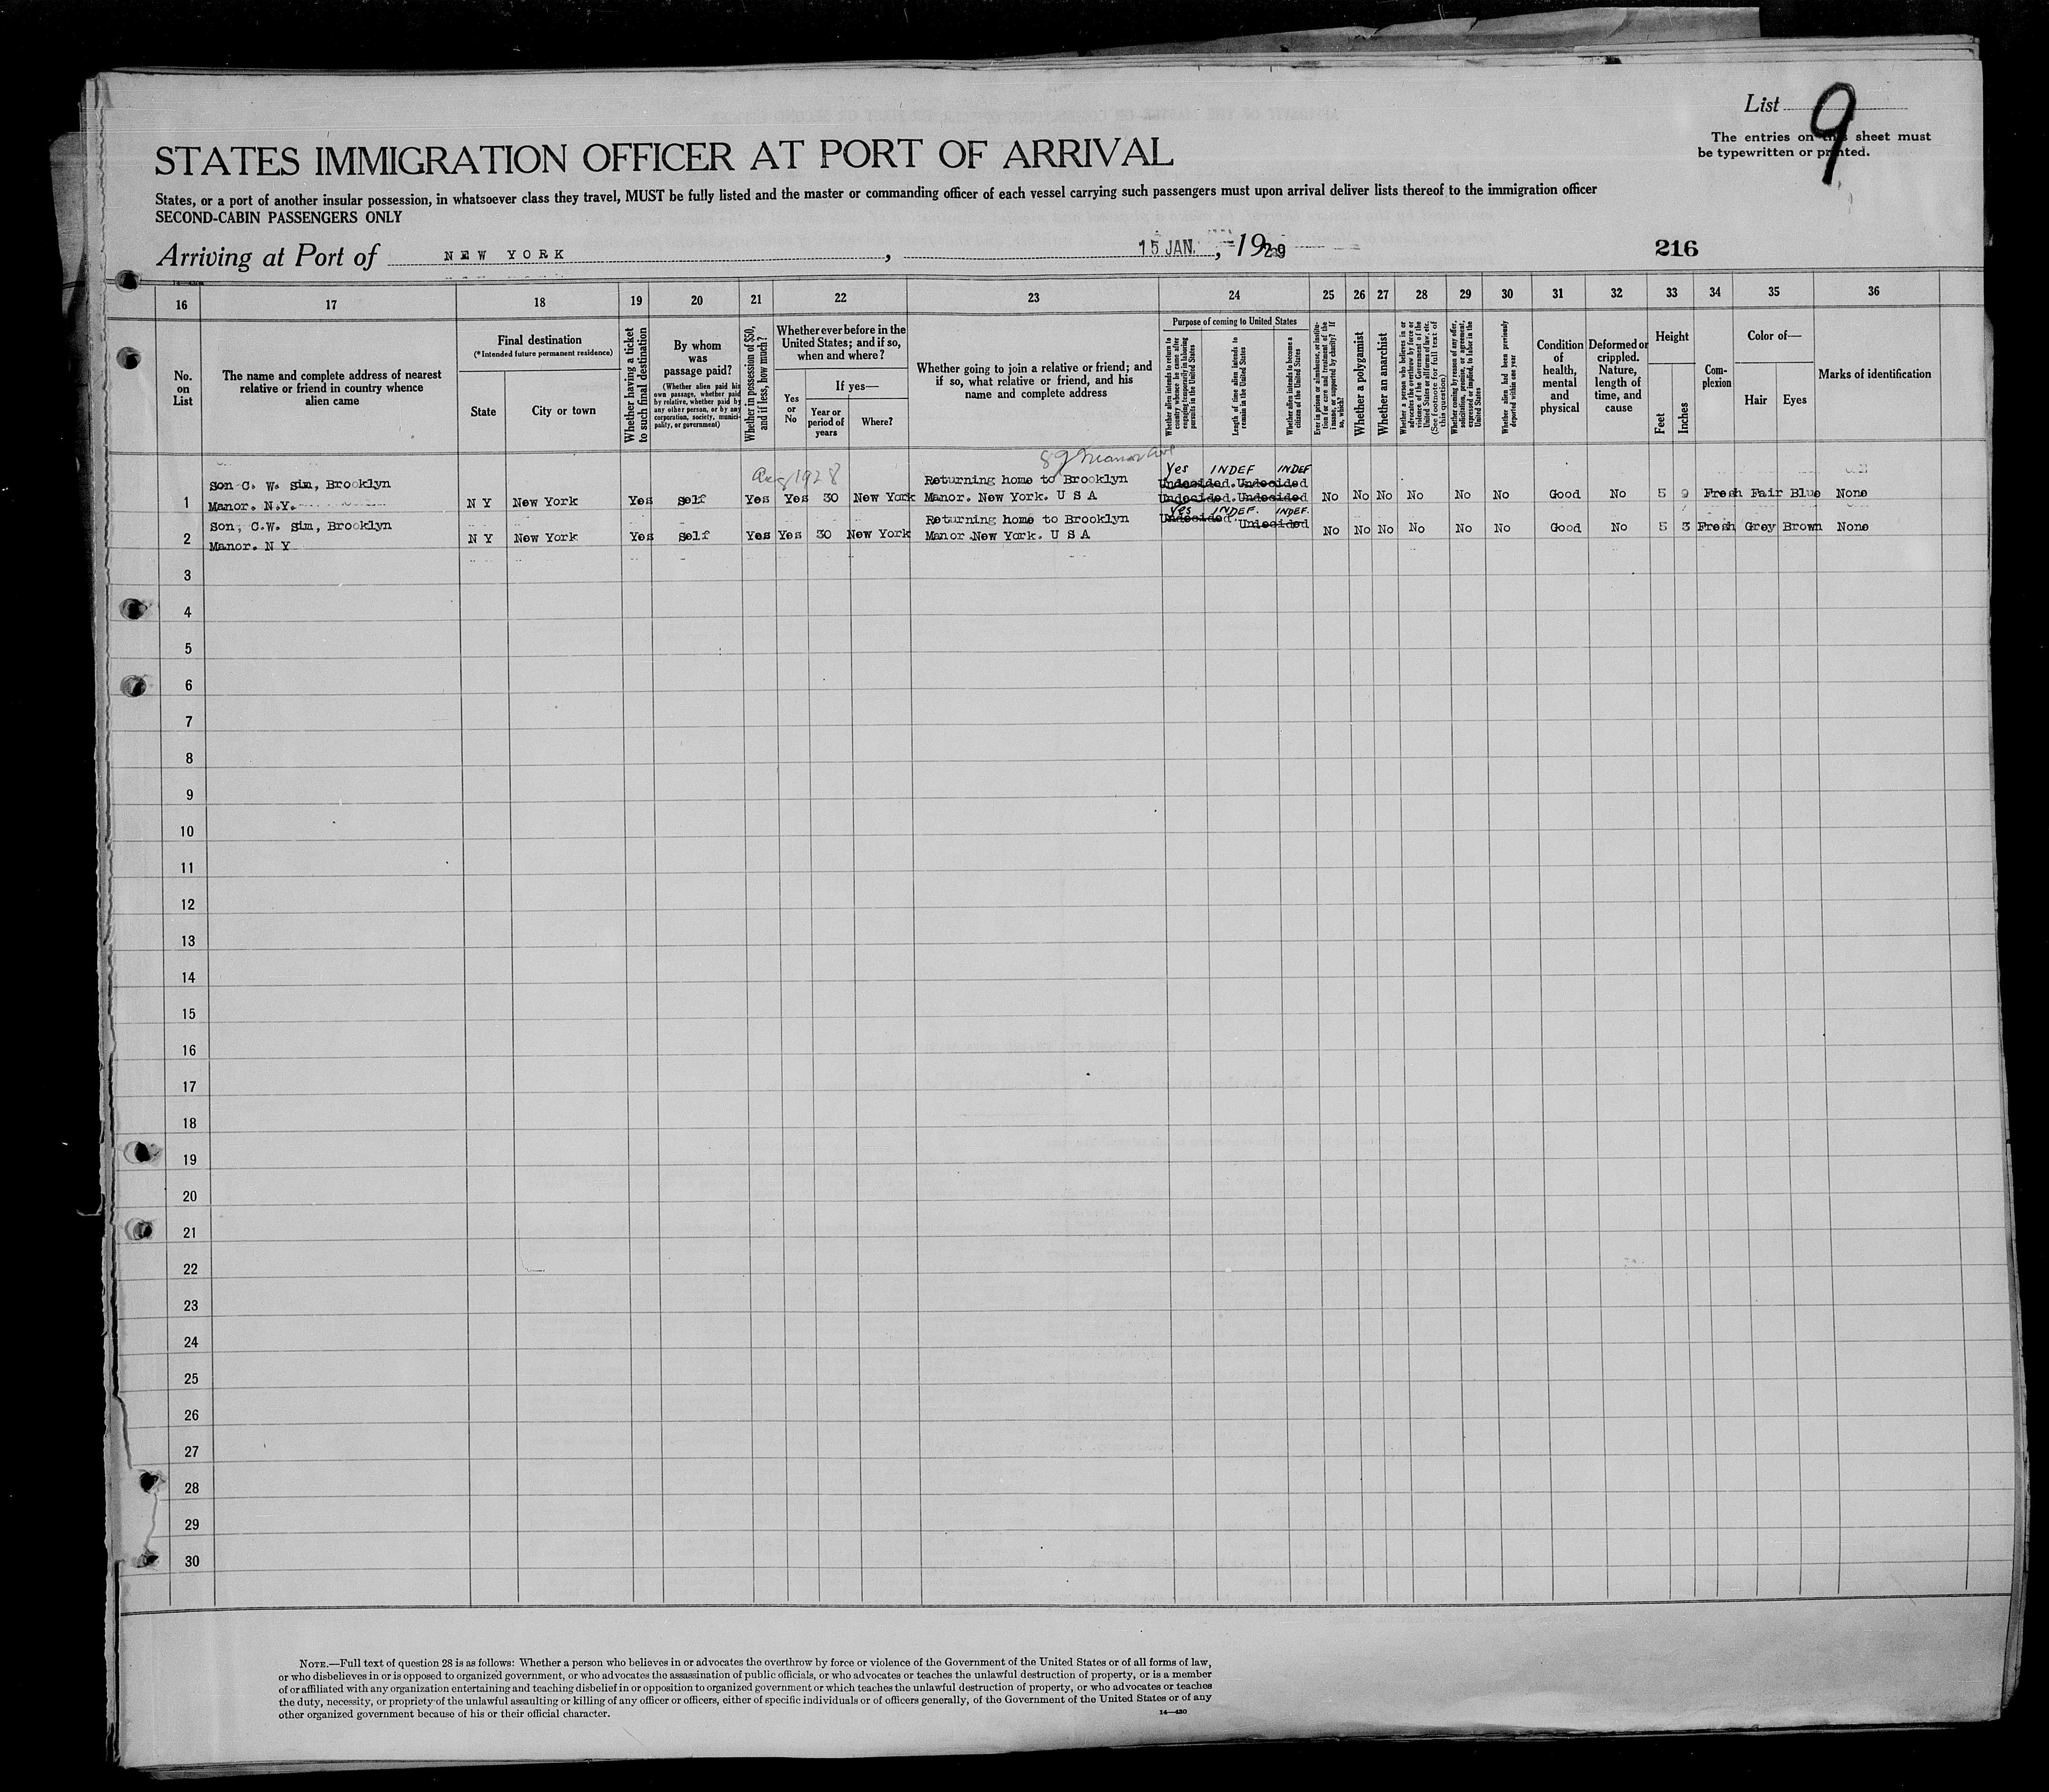 List 9
The entries on this sheet must
be typewritten or printed.
STATES IMMIGRATION OFFICER AT PORT OF ARRIVAL
States, or a port of another insular possession, in whatsoever class they travel, MUST be fully listed and the master or commanding officer of each vessel carrying such passengers must upon arrival deliver lists thereof to the immigration officer
SECOND-CABIN PASSENGERS ONLY
Arriving at Port of NEW YORK, 15 JAN., 1929
216
16 17 18 19 20 21 22 23 24 25 26 27 28 29 30 31 32 33 34 35 36
No.
on
List
The name and complete address of nearest
relative or friend in country whence
alien came
Final destination
(*Intended future permanent residence)
State
City or town
Whether having a ticket
to such final destination
By whom
was
passage paid?
(Whether alien paid his
own passage, whether paid
by relative, whether paid by
any other person, or by any
corporation, society, munici-
pality, or government)
Whether in possession of $50,
and if less, how much?
Whether ever before in the
United States; and if so,
when and where?
Yes
or
No
If yes—
Year or
period of
years
Where?
Whether going to join a relative or friend; and
if so, what relative or friend, and his
name and complete address
Purpose of coming to United States
Whether alien intends to return to
country whence he came after
engaging temporarily in laboring
pursuits in the United States
Length of time alien intends to
remain in the United States
Whether alien intends to become a
citizen of the United States
Ever in prison or almshouse, or institu-
tion for care and treatment of the
insane, or supported by charity? If
so, which?
Whether a polygamist
Whether an anarchist
Whether a person who believes in or
advocates the overthrow by force or
violence of the Government of the
United States or all forms of law, etc.
(See footnote for full text of
this question)
Whether coming by reason of any offer,
solicitation, promise, or agreement,
expressed or implied, to labor in the
United States
Whether alien had been previously
deported within one year
Condition
of
health,
mental
and
physical
Deformed or
crippled.
Nature,
length of
time, and
cause
Height
Feet
Inches
Com-
plexion
Color of—
Hair
Eyes
Marks of identification
Aug 1928
89 Manor Ave
Yes INDEF INDEF
Son C. W. Sim, Brooklyn Returning home to Brooklyn Undecided. Undecided
1 Manor. N.Y. N Y New York Yes Self Yes Yes 30 New York Manor. New York. U S A Undecided. Undecided No No No No No No Good No 5 9 Fresh Fair Blue None
Yes INDEF. INDEF.
Son, C.W. Sim, Brooklyn Returning home to Brooklyn Undecided. Undecided
2 Manor. N Y N Y New York Yes Self Yes Yes 30 New York Manor New York. U S A No No No No No No Good No 5 3 Fresh Grey Brown None
3
4
5
6
7
8
9
10
11
12
13
14
15
16
17
18
19
20
21
22
23
24
25
26
27
28
29
30
NOTE.—Full text of question 28 is as follows: Whether a person who believes in or advocates the overthrow by force or violence of the Government of the United States or of all forms of law,
or who disbelieves in or is opposed to organized government, or who advocates the assassination of public officials, or who advocates or teaches the unlawful destruction of property, or is a member
of or affiliated with any organization entertaining and teaching disbelief in or opposition to organized government or which teaches the unlawful destruction of property, or who advocates or teaches
the duty, necessity, or propriety of the unlawful assaulting or killing of any officer or officers, either of specific individuals or of officers generally, of the Government of the United States or of any
other organized government because of his or their official character.
14—430